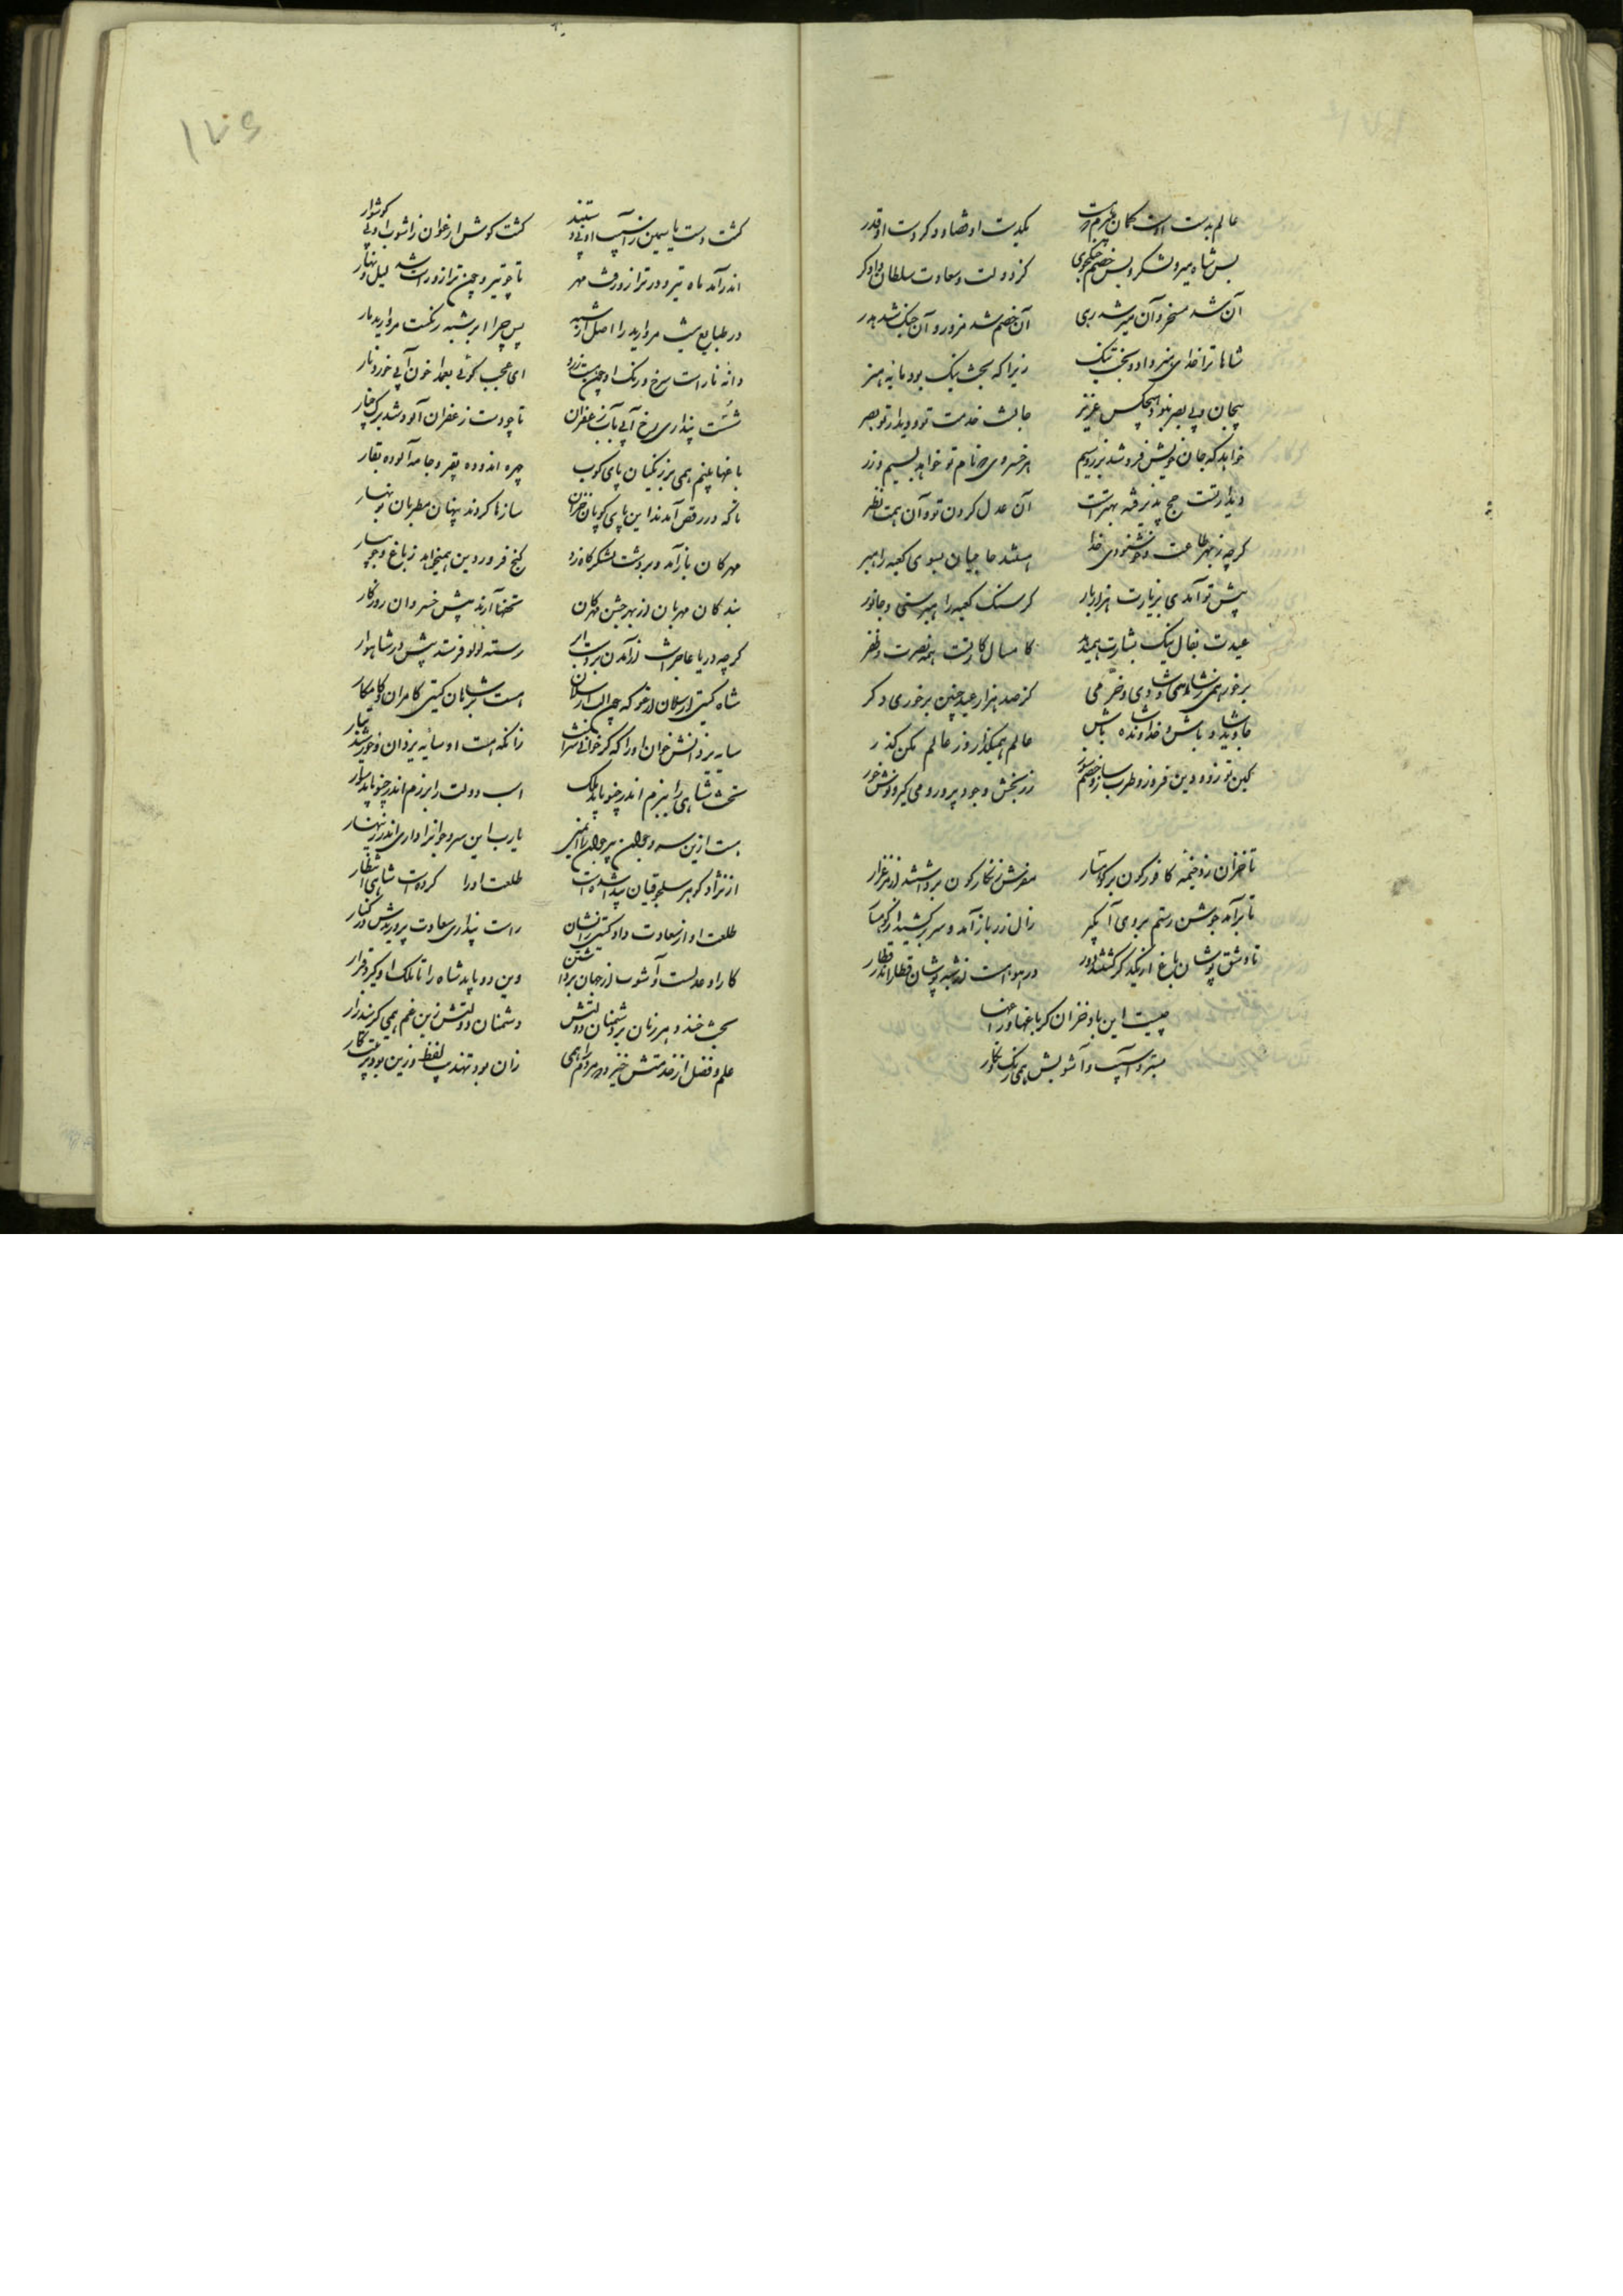 عالم بدست اوست کمان هم بدست
یکدست او قضا و دگر دست او قدر
بس شاه میر و لشکر و بس خصم جنگجوی
کز دولت و سعادت سلطان دادگر
آن شد مسخر و آن میر شد رهی
آن خصم شد مزور و آن جنگ شد هدر
شاها ترا خدای هنر داد و بخت نیک
زیرا که بخت نیک بود مایه هنر
بیجان و بی بصر نبود هیچکس عزیز
جانست خدمت تو و دیدار تو بصر
خواهد که جان خویش فروشد بزر و سیم
هر خسروی که نام تو خواهد بسیم و زر
دیدارتست حج پذیرفته بهترست
آن عدل کردن تو و آن همت نظر
گرچه ز بهر طاعت و خوشنودی خدا
استند حاجیان بسوی کعبه راهبر
پیش تو آمدی بزیارت هزار بار
گر سنگ کعبه را هبرستی و جانور
عیدت بفال نیک بشارت همیدهد
کامسال کار تست همه نصرت و ظفر
برخور همی ز شاهی و شادی و خرمی
کز صد هزار عید چنین برخوری دگر
جاوید شاد باش و خداونده باش
عالم همیگذار و ز عالم مکن گذر
کین توز و دین فروز و طرب ساز و خصم سوز
زر بخش و جود پرور و می گیر و نوش خور
تا خزان زد خیمه کافورگون بر کوهسار
مفرش زنگارگون برداشتند از مرغزار
تا برآمد جوشن رستم بروی آبگیر
زال زر باز آمد و سر برکشید از کوهسار
تا وشق پوشان باغ از یکدگر گشتند دور
در هواست از شبه پوشان قطار اندر قطار
چیست این باد خزان کز باغها و راغها
بسترد آسیب و آشوبش همی رنگ نگار
۱۷۶
گشت دست یاسمین ز آسیب او بی دستبند
گشت گوش ارغوان ز آشوب او بی گوشوار
اندر آمد ماه تیر و در ترازو رفت مهر
تا چو تیر و چون ترازو راست شد لیل و نهار
در طبایع نیست مروارید را اصل از شبه
پس چرا ابر شبه رنگست مروارید بار
دانه نار است سرخ و رنگ او چون هست زرد
ای عجب گوئی بعمدا خون آبی خورد نار
شست پنداری رخ آبی بآب زعفران
تا چو دست زعفران آلود شد برگ چنار
باغها بینم همی پر زنگیان پای کوب
چهره اندوده بقیر و جامه آلوده بقار
تا که در رقص آمدند این پای کوبان خزان
سازها کردند پنهان مطربان نوبهار
مهرگان باز آمد و بر دشت لشکرگاه زد
گنج فروردین همیخواهد ز باغ و جویبار
بندگان مهربان از بهر جشن مهرگان
تحفها آرند پیش خسروان روزگار
گرچه دریا عاجز است از آمدن بر دست ابر
رسته لؤلؤ فرستد پیش در شاهوار
شاه گیتی ارسلان ارغو که چون الب ارسلان
هست بر شاهان گیتی کامران و کامکار
سایه یزدانش خوان او را که گر خوانی سزاست
زانکه هست او سایه یزدان و خورشید تبار
تخت شاهی را ببزم اندر چنو باید ملک
اسب دولت را برزم اندر چنو باید سوار
هست ازین سرو جوان پیر و جوان را ایمنی
یارب این سرو جوانرا داری اندر زینهار
از نژاد گوهر سلجوقیان پیدا شدست
طلعت او را کرده است شاهی انتظار
طلعت او از سعادت داد گیتی را نشان
راست پنداری سعادت پروریدش در کنار
کار او عدلست و آشوب از جهان برداشتن
وین دو باید شاه را تا ملک او گیرد قرار
بخت خندد هر زمان بر دشمنان دولتش
دشمنان دولتش زین غم همی گریند زار
علم و فضل از خدمتش خیزد مردم را همی
زان بود تهذیب لفظ و زین بود ترتیب کار